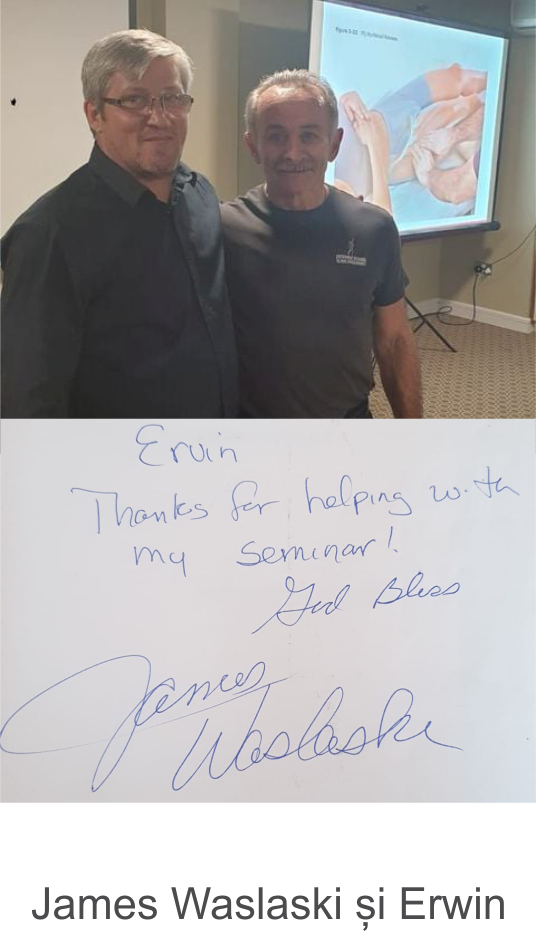 Ervin
Thanks for helping with
my seminar!
God Bless
James
Waslaski
James Waslaski și Erwin